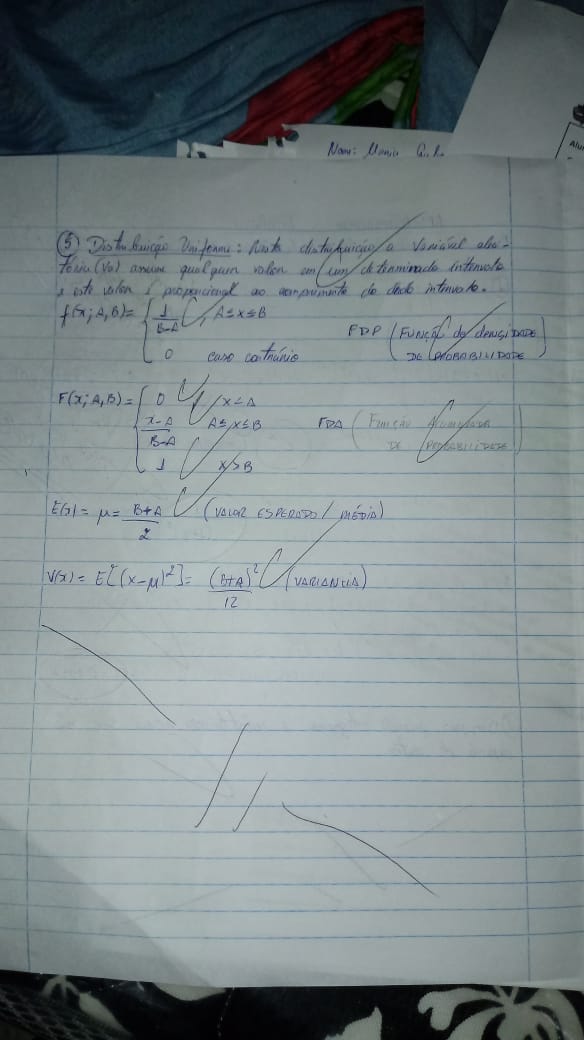 Nome: Maria
Alu
(5) Distribuição Uniforme: Nesta distribuição a variável alea-
tória (va) assume qualquer valor em um determinado intervalo
e este valor é proporcional ao comprimento do dado intervalo.
f(x; A, B) = { 1/(B-A) , A ≤ x ≤ B
0 caso contrário
FDP (FUNÇÃO DE DENSIDADE
DE PROBABILIDADE)
F(x; A, B) = { 0 , x < A
(x-A)/(B-A) A ≤ x ≤ B
1 x > B
FDA (FUNÇÃO ACUMULADA
DE PROBABILIDADE)
E(x) = μ = (B+A)/2 (VALOR ESPERADO / MÉDIA)
V(x) = E[(x-μ)²] = (B+A)²/12 (VARIANCIA)